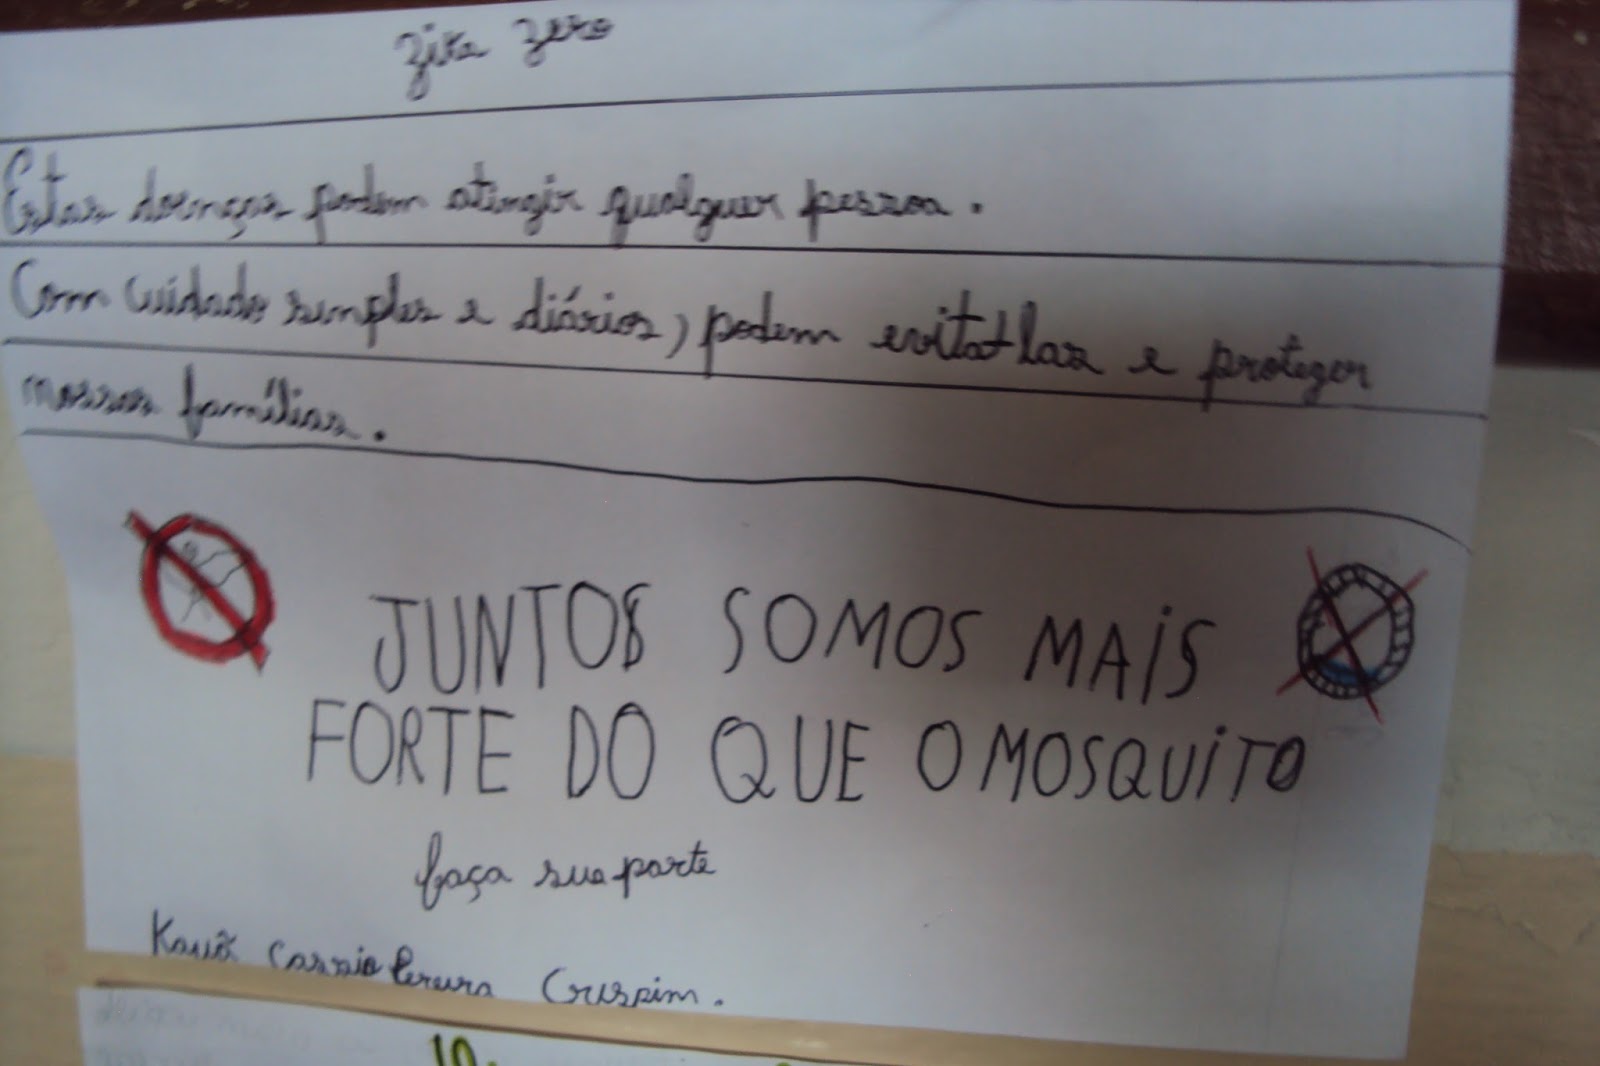 zika zero
Estas doenças podem atingir qualquer pessoa.
Com cuidado simples e diários, podem evitat-las e proteger
nossas famílias.
JUNTOS SOMOS MAIS
FORTE DO QUE O MOSQUITO
faça sua parte
Kauã Cassio Pereira Cruspim.
10.